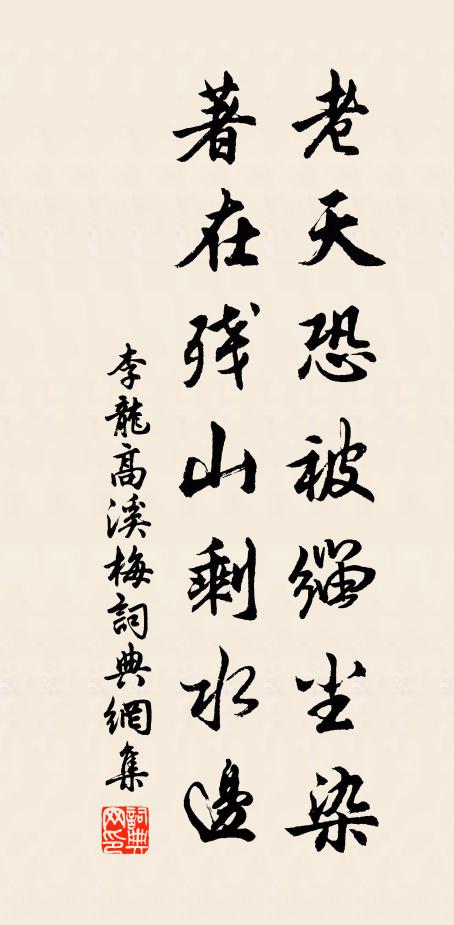 老天恐被缁尘染
著在残山剩水邊
李龍高溪梅詞典網集
詞典網印